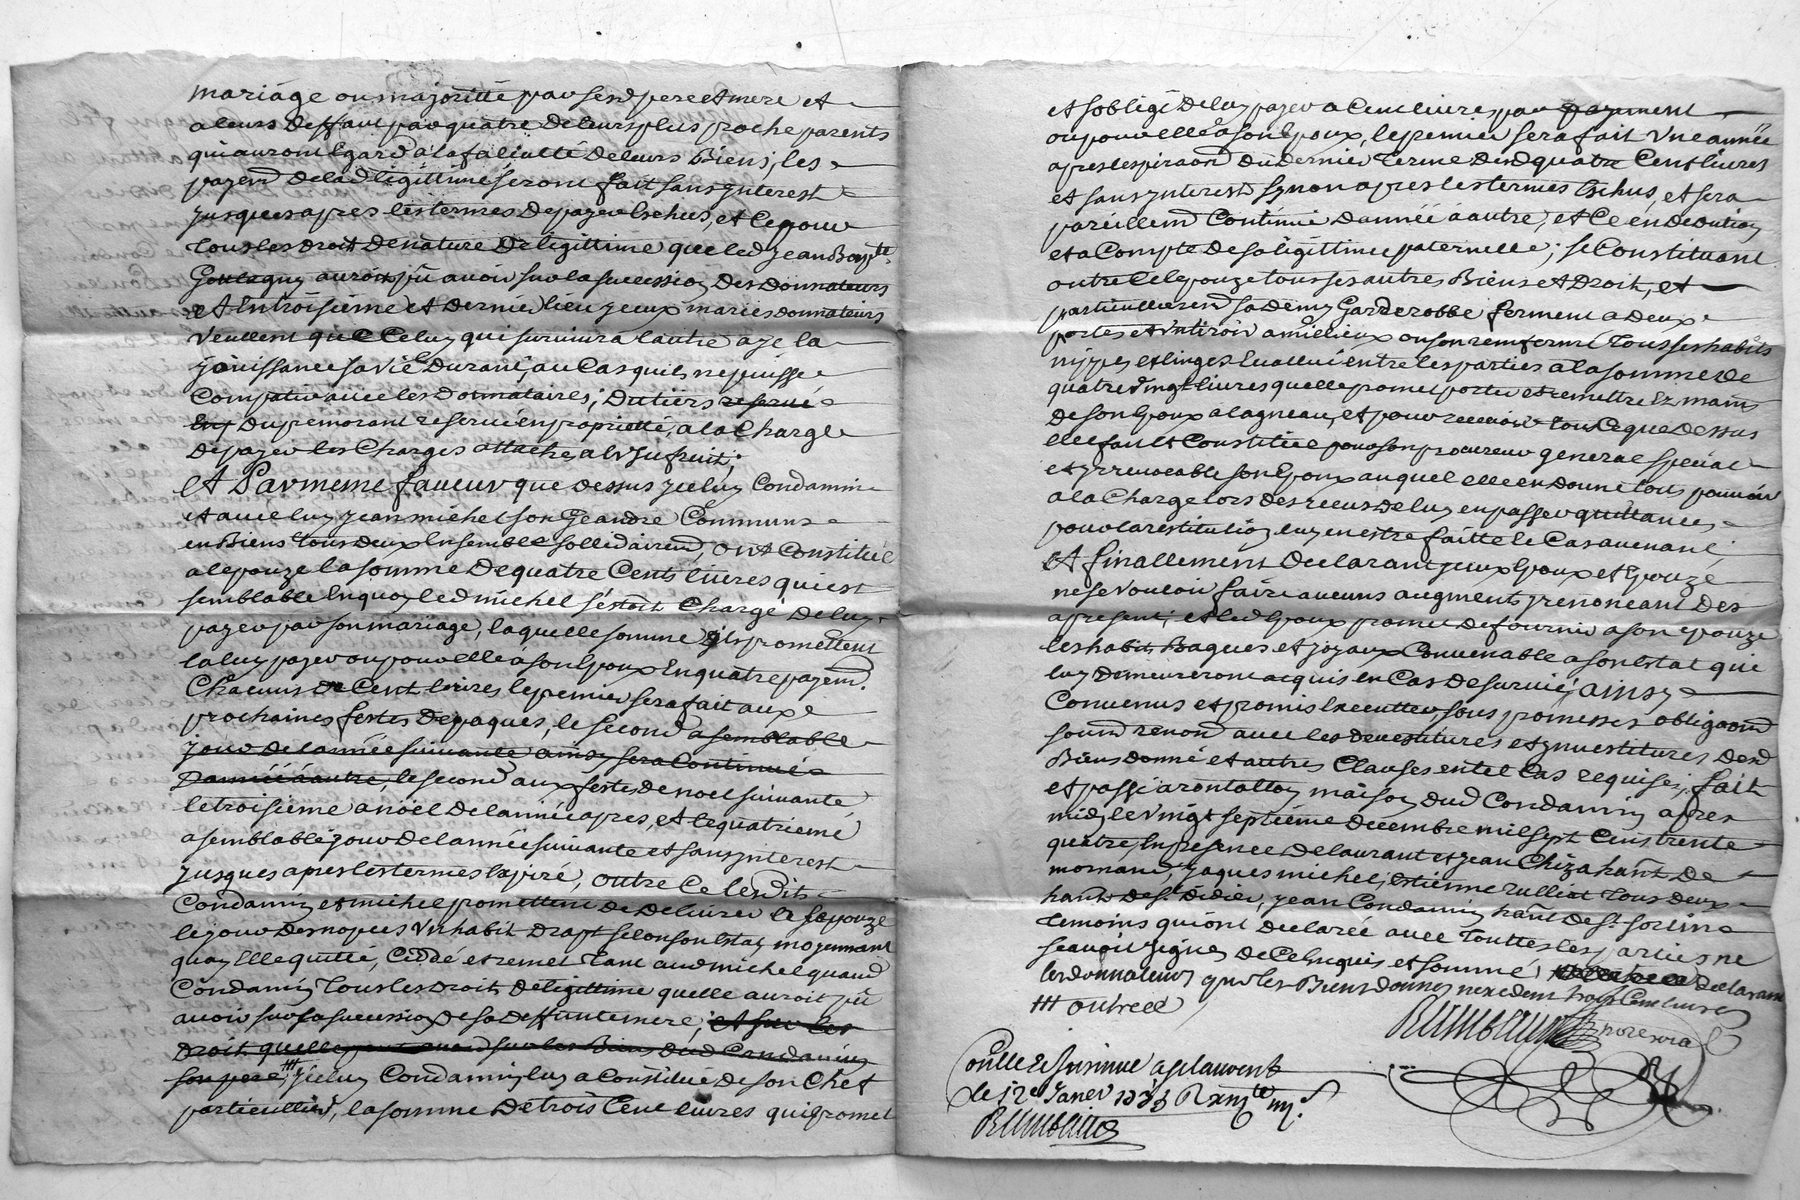 mariage ou majoritté par sesd pere et mere et
a leurs deffaut par quatre de leurs plus proche parents
qui auront Egard a la faliculté de leurs Biens; les
payem de lad légittime seront fait sans ynterest
jusques apres les termes de payer Eschus, et Ce pour
tous les droit de nature de légittime que led jean Bapte
Goutagny auroit pû avoir sur la succession des donnateurs
et Entroisieme et dernier lieu yceux mariés donnateurs
Veullent que Celuy qui survivra lautre aye la
jouissance sa vie durant, au Cas quils ne puisse
Compatir avec les donnataires; du tiers reservé
du premorant reservé en proprietté, a la Charge
de payer les Charges attaches a lusufruit;
et Par meme faveur que dessus yceluy Condamin
et avec luy jean michel son Geandre Communs
en Biens tous deux Ensemble sollidairem, ont Constitué
a lepouze la somme de quatre Cents livres qui est
semblable En quoy led michel sestoit Chargé de luy
payer par son mariage, laquelle somme ils promettent
la luy payer ou pour elle a son Epoux En quatre payem.
Chacuns de Cent livres le premier sera fait aux
prochaines festes de paques, le second a semblable
jour de lannée suivante ainsy sera Continué
dannée a autre, le second aux festes de noel suivante
le troisieme a noël de lannée apres, et le quatrieme
a semblable jour de lannée suivante et sans ynterest
jusques apres les termes Expiré, outre Ce lesdits
Condamin et michel promettent de delivrer a lepouze
le jour des nopces Un habit drapt selon son Estat, moyennant
quoy Elle quitte, Cedde et remet tant aud michel quaud
Condamin tous les droits de légittime quelle auroit pû
avoir sur la succession de sa deffunte mere, et sur les
droit quelle peut avoir sur les Biens dud Condamin
son pere, yceluy Condamin luy a Constitué de son Chef
particullier, la somme de trois Cent livres qui promet
et soblige de luy payer a Cent livres par payement
ou pour elle a son Epoux, le premier sera fait Une année
apres lespiraon du dernier terme desd quatre Cent livres
et sans ynterest, synon apres les termes Eschus, et sera
pareillem Continué dannée a autre, et Ce en deduction
et a Compte de sa légittime paternelle; se Constituant
outre Ce lepouze tous ses autres Biens et droit, et
particullierem sa demy Garderobbe ferment a deux
portes et Un tiroir a milieux ou son remfermé tous ses habits
nippes et linges Evallué entre les parties a la somme de
quatre vingt livres quelle promet porter et remettre Ez mains
de son Epoux a lagneau, et pour recevoir tout Ce que dessus
elle fait et Constitue pour son procureur general special
et yrrevocable son Epoux auquel elle en donne tous pouvoir
a la Charge lors des receus de luy en passer quittances,
pour la restitution luy en estre faitte le Cas avenant,
et finallement declarant yceux Epoux et Epouze
ne se vouloir faire aucuns augments y renonceant des
a present; et led Epoux promet de fournir a son epouze
les habit, Bagues et joyaux Convenable a son Estat qui
luy demeureront acquis en Cas de survie, ainsy
Convenus et promis Executter, sous promesses obligaons
soumn renon avec les devestitures et ynvestitures desd
Biens donné et autres Clauses en tel Cas requises, fait
et passé a rontalton maison dud Condamin apres
midy le vingt septieme decembre mil sept Cens trente
quatre, En presence de laurant et jean Chiza hant de
mornant, jaques michel, Estienne rulliat tous deux
hant de st didier, jean Condamin hant de st sorlin
temoins qui ont declaré avec touttes les parties ne
scavoir signer de Ce Enquis et sommé, declarant
les donnateurs que les Biens donnes nexedent trois Cent livres
ttt outre ed
Collé & Insinué a st laurent
le 12e Janer 1735